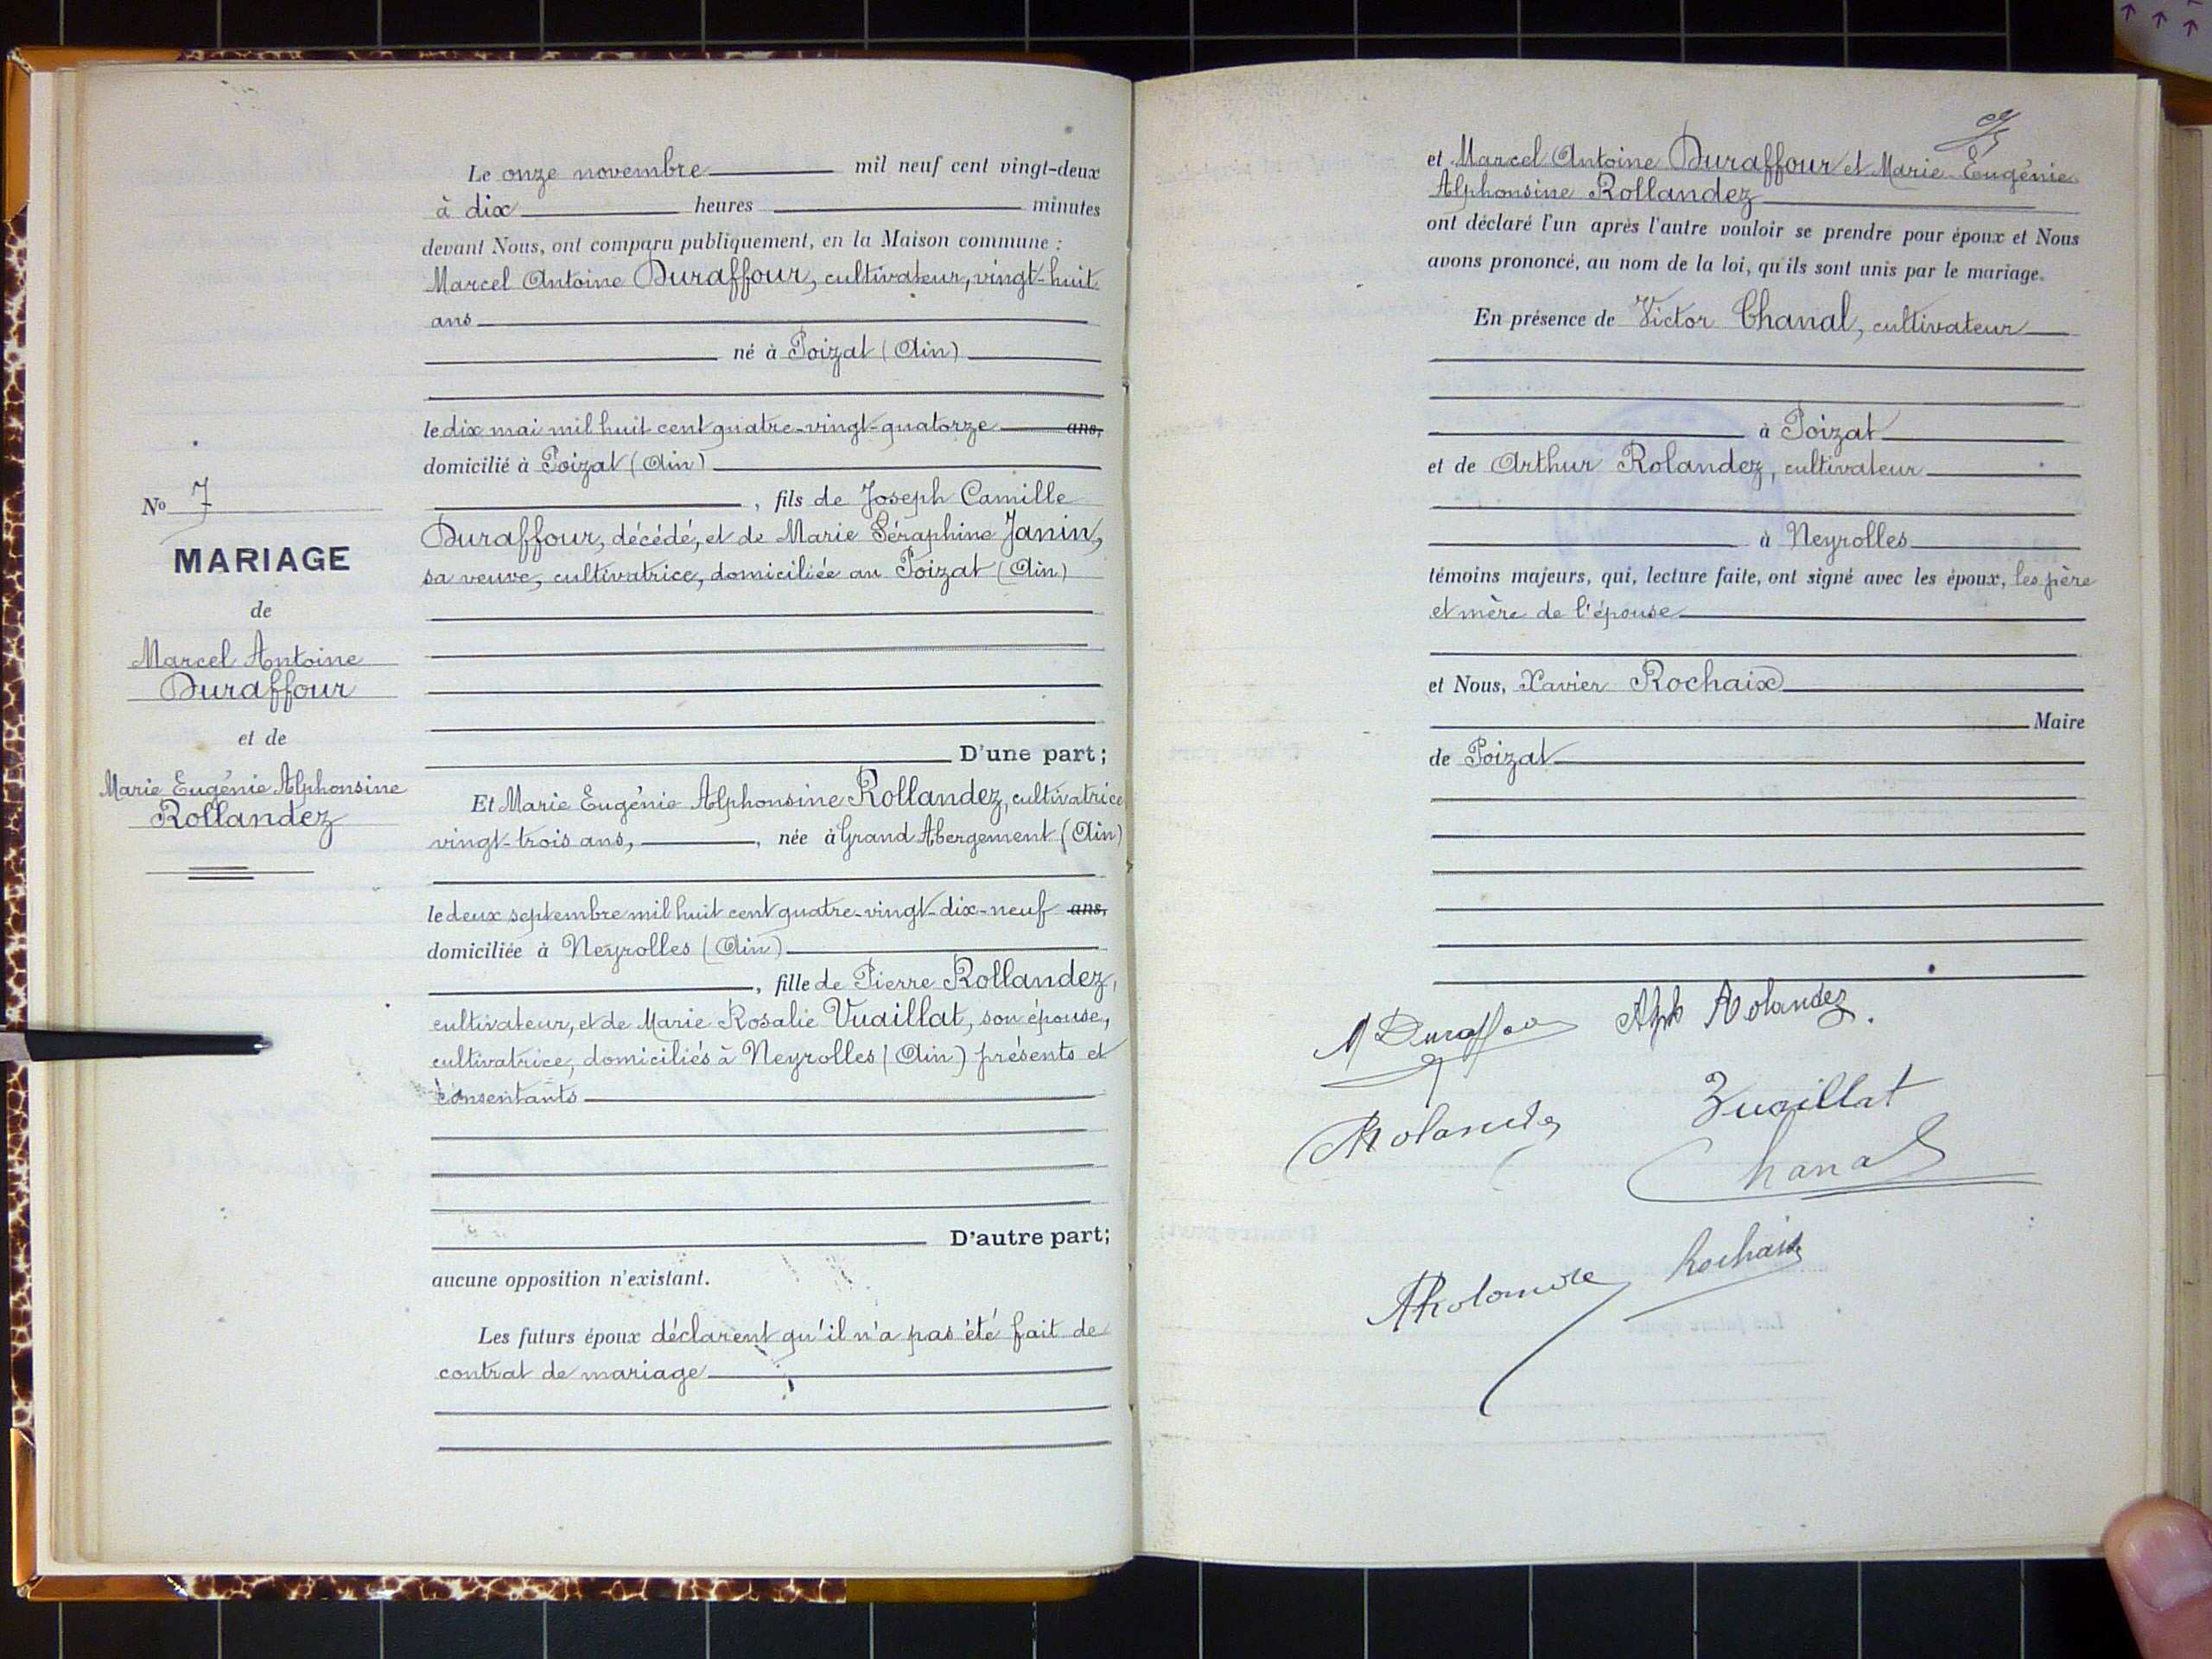 No 7
MARIAGE
de
Marcel Antoine
Duraffour
et de
Marie Eugénie Alphonsine
Rollandez
Le onze novembre mil neuf cent vingt-deux
à dix heures minutes
devant Nous, ont comparu publiquement, en la Maison commune :
Marcel Antoine Duraffour, cultivateur, vingt-huit
ans
né à Poizat (Ain)
le dix mai mil huit cent quatre-vingt-quatorze ans,
domicilié à Poizat (Ain)
, fils de Joseph Camille
Duraffour, décédé, et de Marie Séraphine Janin,
sa veuve, cultivatrice, domiciliée au Poizat (Ain)
D'une part;
Et Marie Eugénie Alphonsine Rollandez, cultivatrice
vingt-trois ans, , née à Grand Abergement (Ain)
le deux septembre mil huit cent quatre-vingt-dix-neuf ans,
domiciliée à Neyrolles (Ain)
, fille de Pierre Rollandez,
cultivateur, et de Marie Rosalie Vuaillat, son épouse,
cultivatrice, domiciliés à Neyrolles (Ain) présents et
consentants
D'autre part;
aucune opposition n'existant.
Les futurs époux déclarent qu'il n'a pas été fait de
contrat de mariage
et Marcel Antoine Duraffour et Marie Eugénie
Alphonsine Rollandez
ont déclaré l'un après l'autre vouloir se prendre pour époux et Nous
avons prononcé, au nom de la loi, qu'ils sont unis par le mariage.
En présence de Victor Chanal, cultivateur
à Poizat
et de Arthur Rolandez, cultivateur
à Neyrolles
témoins majeurs, qui, lecture faite, ont signé avec les époux, les père
et mère de l'épouse
et Nous, Xavier Rochaix
Maire
de Poizat
M Duraffour Alph Rolandez.
Rolandez Vuaillat
Chanal
Rochaix